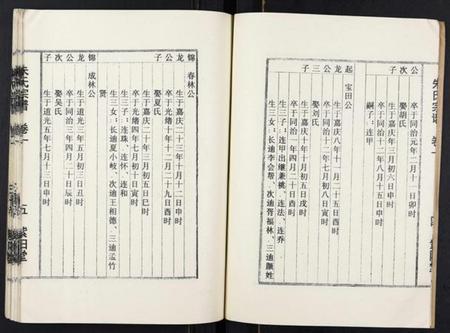 朱氏宗谱 卷一
公 卒于同治元年二月十一日卯时
次 娶胡氏
子 生于嘉庆年三月初六日申时
卒于同治十二年八月十五日申时
嗣子：连甲
起 宝田公
龙 生于嘉庆八年十一月二十五日酉时
公 卒于同治十年十月初五日戌时
三 娶刘氏
子 卒于同治十一年七月初八日寅时
生三子：连甲出继兼祧、连法、连乔
生三女：长适李会帮、次适胥福林、三适颜姓
锦 春林公
龙 生于嘉庆二十三年十月十二日申时
公 卒于光绪十年十二月十九日酉时
子 娶夏氏
生于嘉庆二十年三月初五日巳时
卒于光绪四年十月初十日寅时
生三子：连珠、连怀、连和
生三女：长适夏小岐、次适王相德、三适孟竹
贤
锦 成林公
龙 生于道光三年五月初三日丑时
公 卒于同治三年四月二十日辰时
次 娶吴氏
子 生于道光五年七月十三日申时
朱氏宗谱 卷一
五